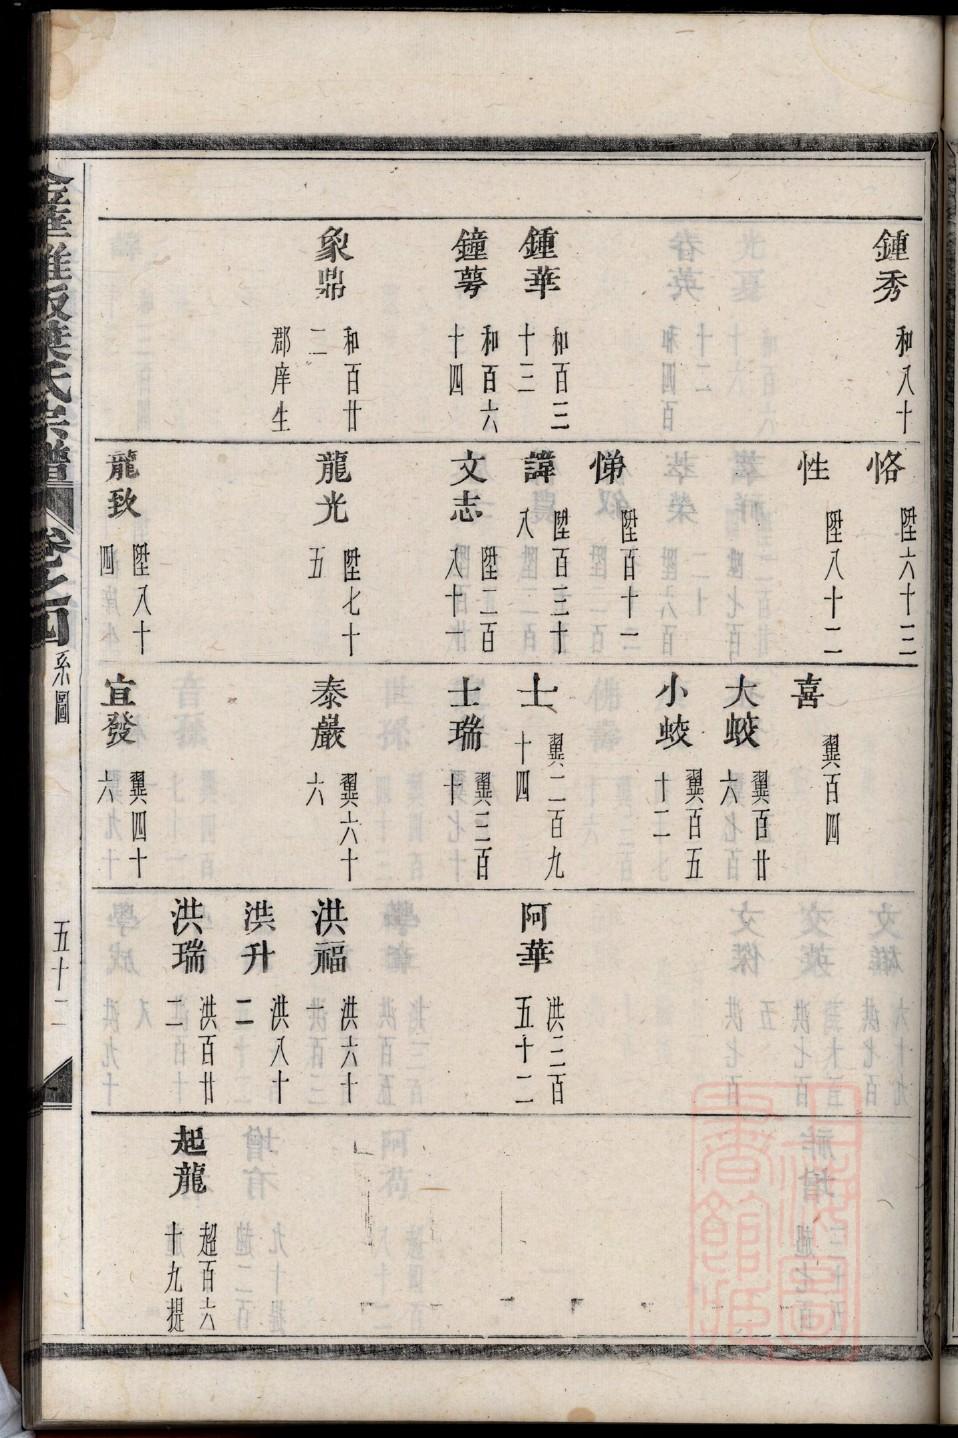 鍾秀 和八十
鍾華 和百三十三
鐘萼 和百六十四
象鼎 和百廿二 郡庠生
恪 陞六十三
性 陞八十二
悌 陞百十一
諱 陞百三十八
文志 陞二百八十一
龍光 陞七十五
龍致 陞八十四
喜 翼百四
大蛟 翼百廿六
小蛟 翼百五十二
士 翼二百九十四
士瑞 翼三百十
泰巖 翼六十六
宜發 翼四十六
阿華 洪三百五十二
洪福 洪六十
洪升 洪八十二
洪瑞 洪百廿二
起龍 超百六十九提
金華雅畈葉氏宗譜 卷之四 系圖 五十二